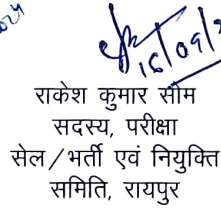 16/09/2
राकेश कुमार सोम
सदस्य, परीक्षा
सेल/भर्ती एवं नियुक्ति
समिति, रायपुर